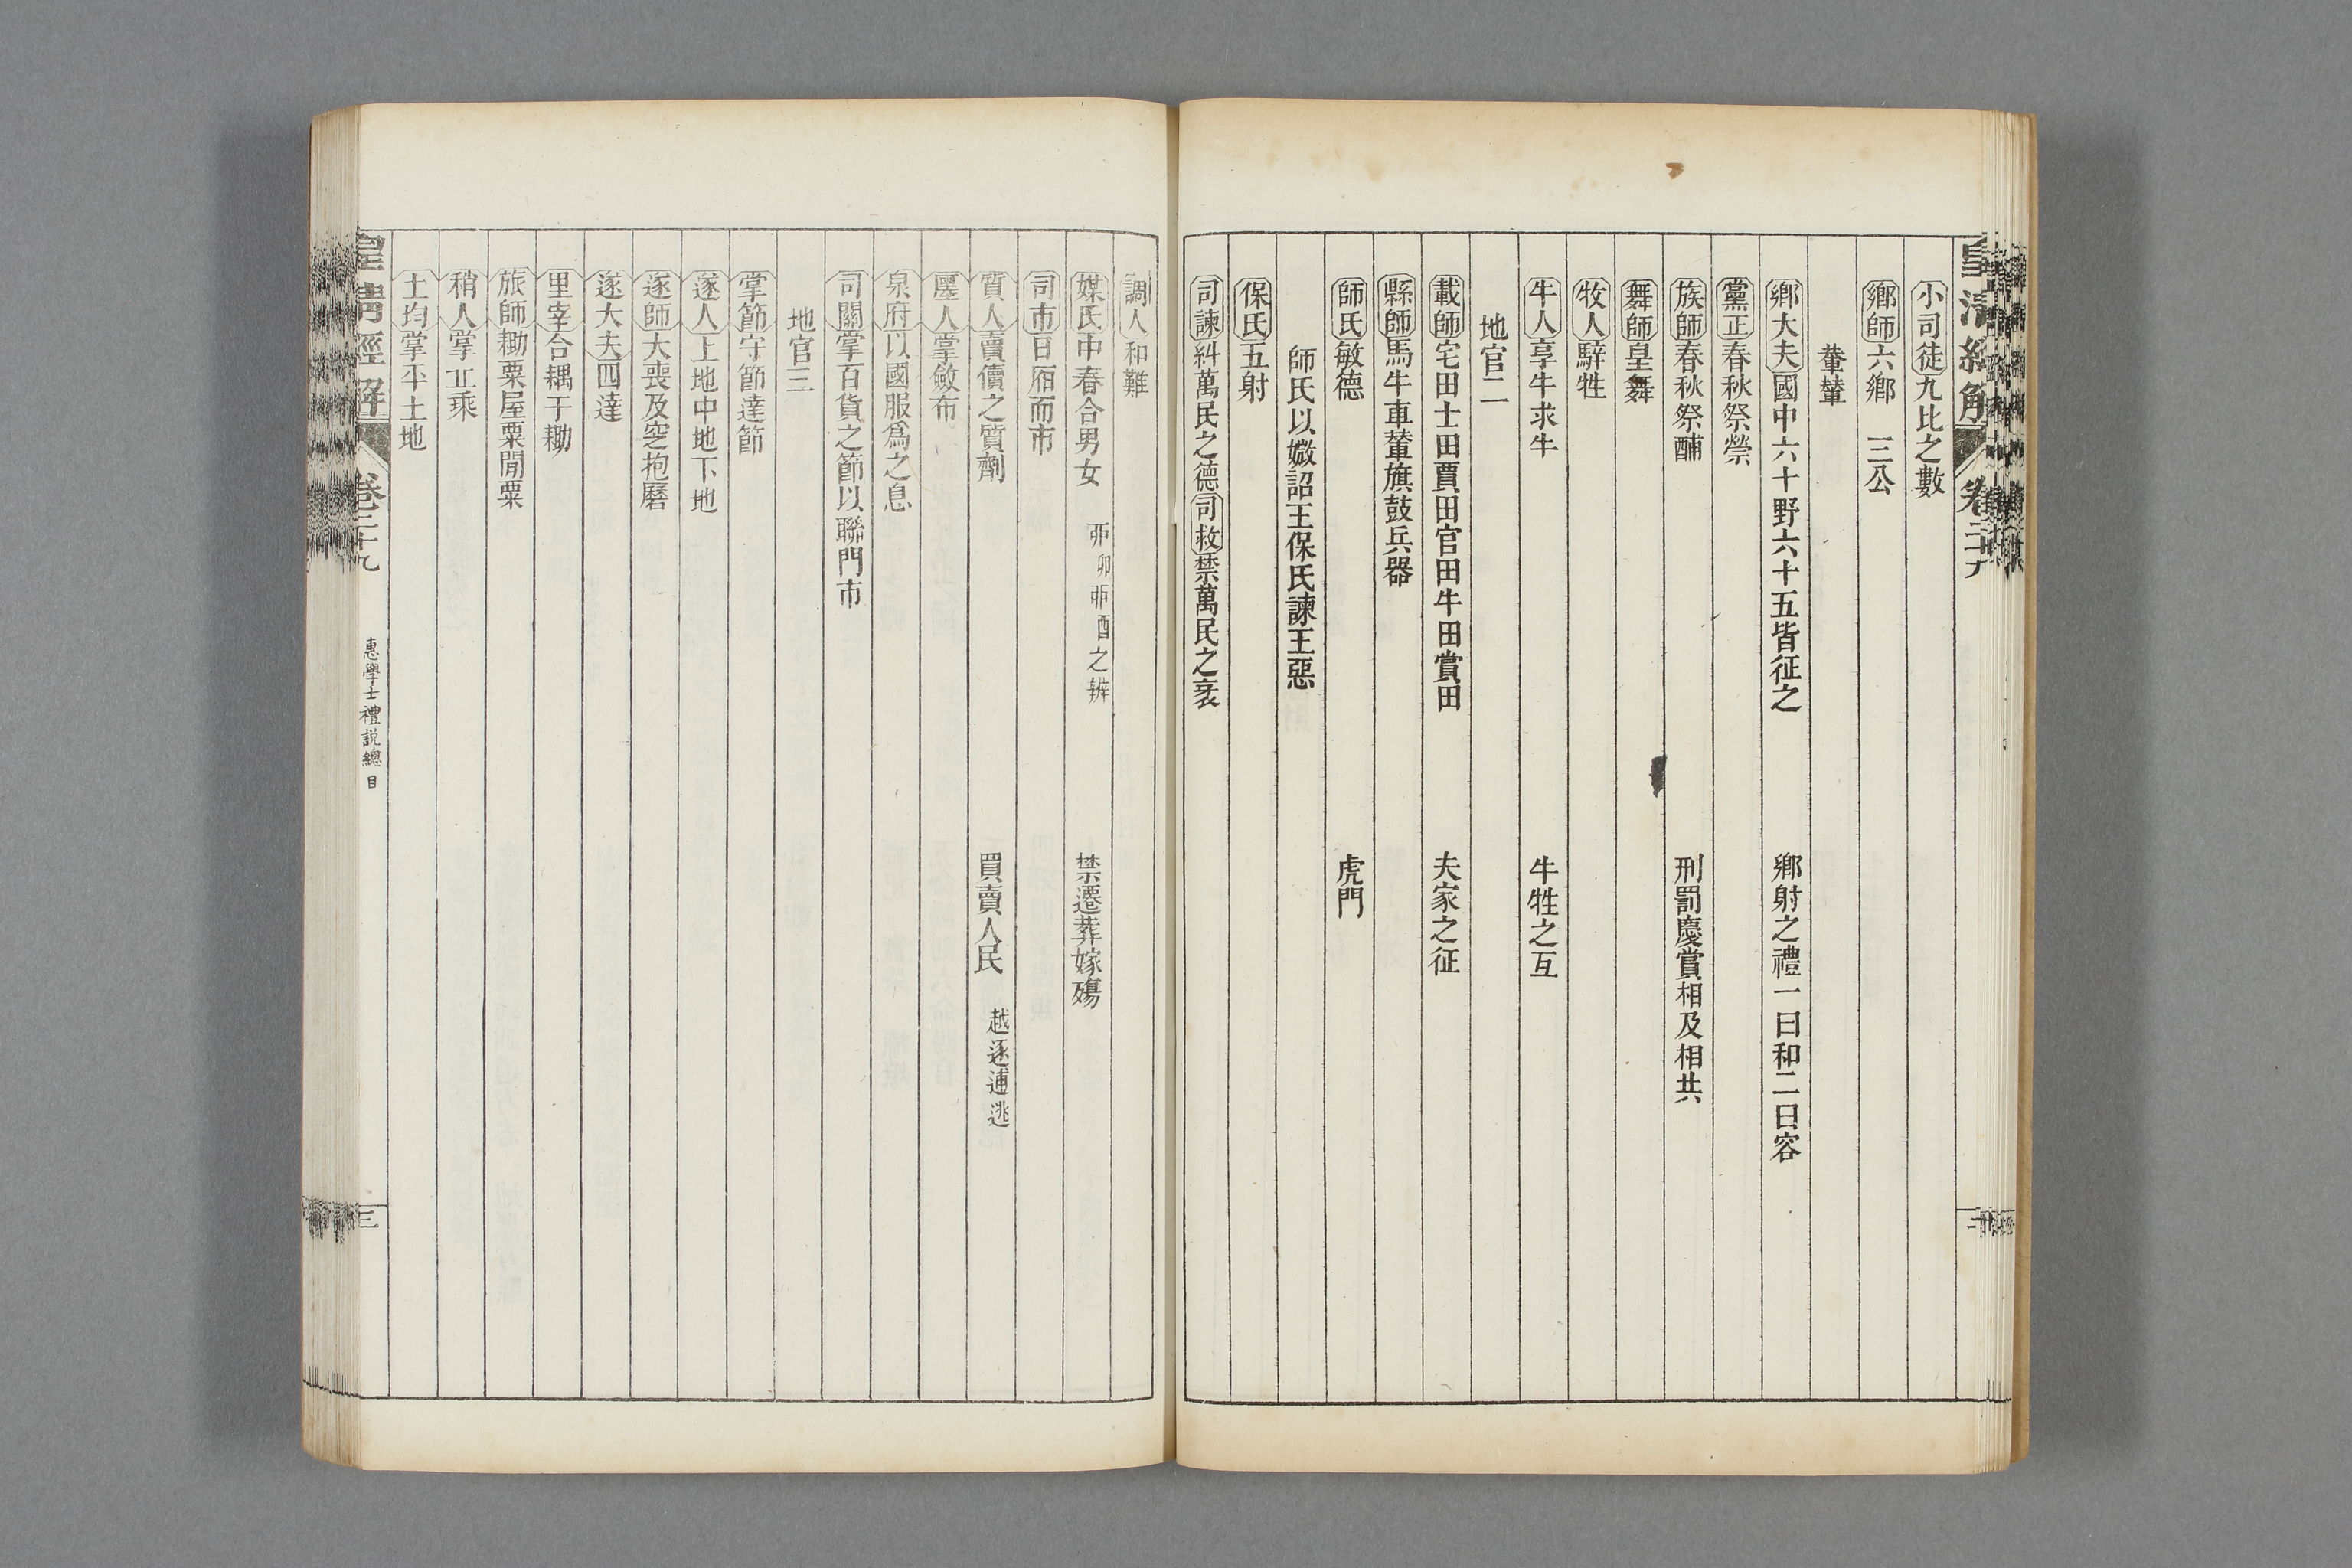 小司徒九比之數
鄉師六鄉　三公
輂輦
鄉大夫國中六十野六十五皆征之　鄉射之禮一曰和二曰容
黨正春秋祭禜
族師春秋祭酺　刑罰慶賞相及相共
舞師皇舞
牧人騂牲
牛人享牛求牛　牛牲之互
地官二
載師宅田士田賈田官田牛田賞田　夫家之征
縣師馬牛車輦旗鼓兵器
師氏敏德　虎門
師氏以媺詔王保氏諫王惡
保氏五射
司諫糾萬民之德司救禁萬民之衺
調人和難
媒氏中春合男女　丣卯丣酉之辨　禁遷葬嫁殤
司市日㕓而市
質人賣儥之質劑　買賣人民　越逐逋逃
廛人掌斂布
泉府以國服爲之息
司關掌百貨之節以聯門市
地官三
掌節守節達節
遂人上地中地下地
遂師大喪及窆抱磿
遂大夫四達
里宰合耦于耡
旅師耡粟屋粟閒粟
稍人掌丘乘
土均掌平土地
皇清經解　卷二十九　惠學士禮說總目　三